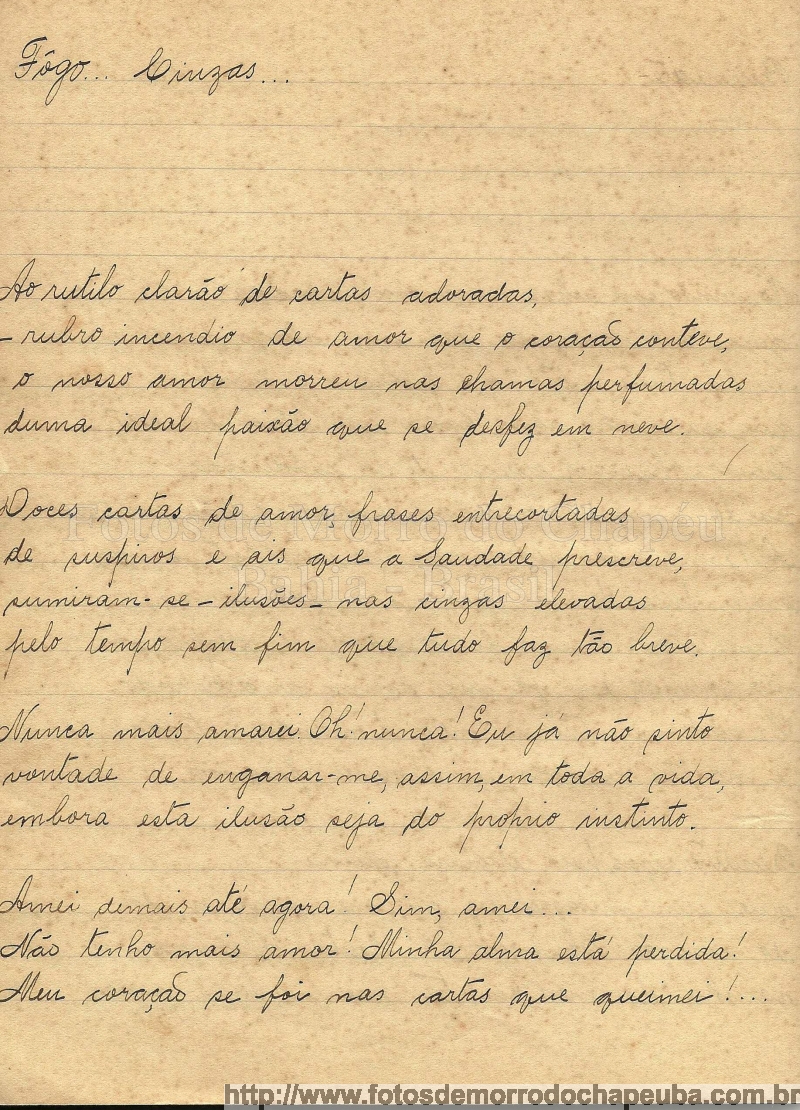 Fôgo... Cinzas...
Ao rutilo clarão de cartas adoradas,
- rubro incendio de amor que o coração conteve,
o nosso amor morreu nas chamas perfumadas
duma ideal paixão que se desfez em neve.
Doces cartas de amor, frases entrecortadas
Fotos de Morro do Chapéu
de suspiros e ais que a Saudade prescreve,
Bahia - Brasil
sumiram-se - ilusões - nas cinzas elevadas
pelo tempo sem fim que tudo faz tão breve.
Nunca mais amarei. Oh! nunca! Eu já não sinto
vontade de enganar-me, assim, em toda a vida,
embora esta ilusão seja do proprio instinto.
Amei demais até agora! Sim, amei...
Não tenho mais amor! Minha alma está perdida!
Meu coração se foi nas cartas que queimei!...
http://www.fotosdemorrodochapeuba.com.br